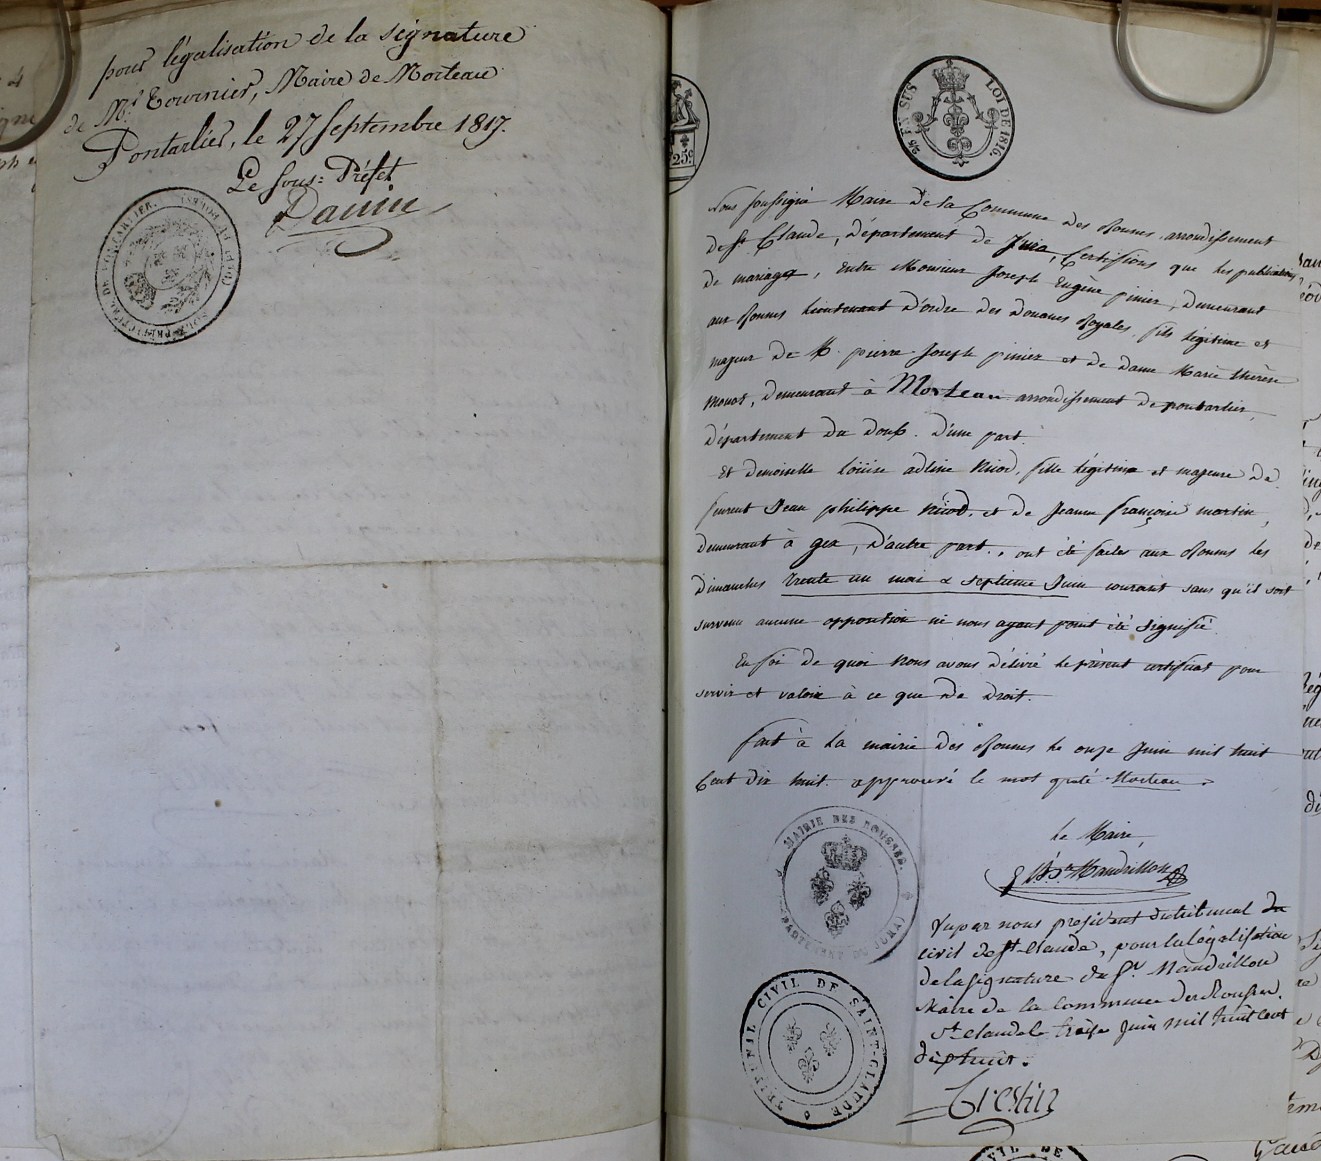 pour légalisation de la signature
de Mr. Tournier, Maire de Morteau
Pontarlier, le 27 Septembre 1817.
Le Sous-Préfet
SOUS-PRÉFECTURE DE PONTARLIER. (DEPT. DU DOUBS)
25c
EN SUS LOI DE 1816.
Nous soussigné Maire de la Commune des Rousses arrondissement
de St. Claude, département de Jura, Certifions que les publications
de mariage, Entre Monsieur Joseph Eugène pinier, demeurant
aux Rousses Lieutenant d'ordre des Douanes Royales, fils légitime et
majeur de M. pierre Joseph pinier et de dame Marie thérèse
Monot, demeurant à Morteau arrondissement de pontarlier,
département du Doubs. d'une part.
Et demoiselle Louise adline Nicod, fille légitime et majeure de
feurent Jean philippe Nicod, et de Jeanne françoise martin,
demeurant à gex, d'autre part, ont été faites aux Rousses les
dimanches trente un mai & septieme Juin courant sans qu'il soit
survenu aucune opposition ni nous ayant point été signifié.
En foi de quoi Nous avons délivré le présent certificat pour
servir et valoir à ce que de Droit.
fait à La mairie des Rousses le onze Juin mil huit
Cent dix huit. approuvé le mot gratté Morteau
MAIRIE DES ROUSSES. (DÉPARTEMENT DU JURA)
Le Maire,
Mandrillon
Vu par nous president du tribunal
civil de St. Claude, pour la légalisation
de la signature du Sr. Mandrillon
Maire de la commune des Rousses.
St. Claude le treize Juin mil huit cent
dix huit.
TRIBUNAL CIVIL DE SAINT-CLAUDE